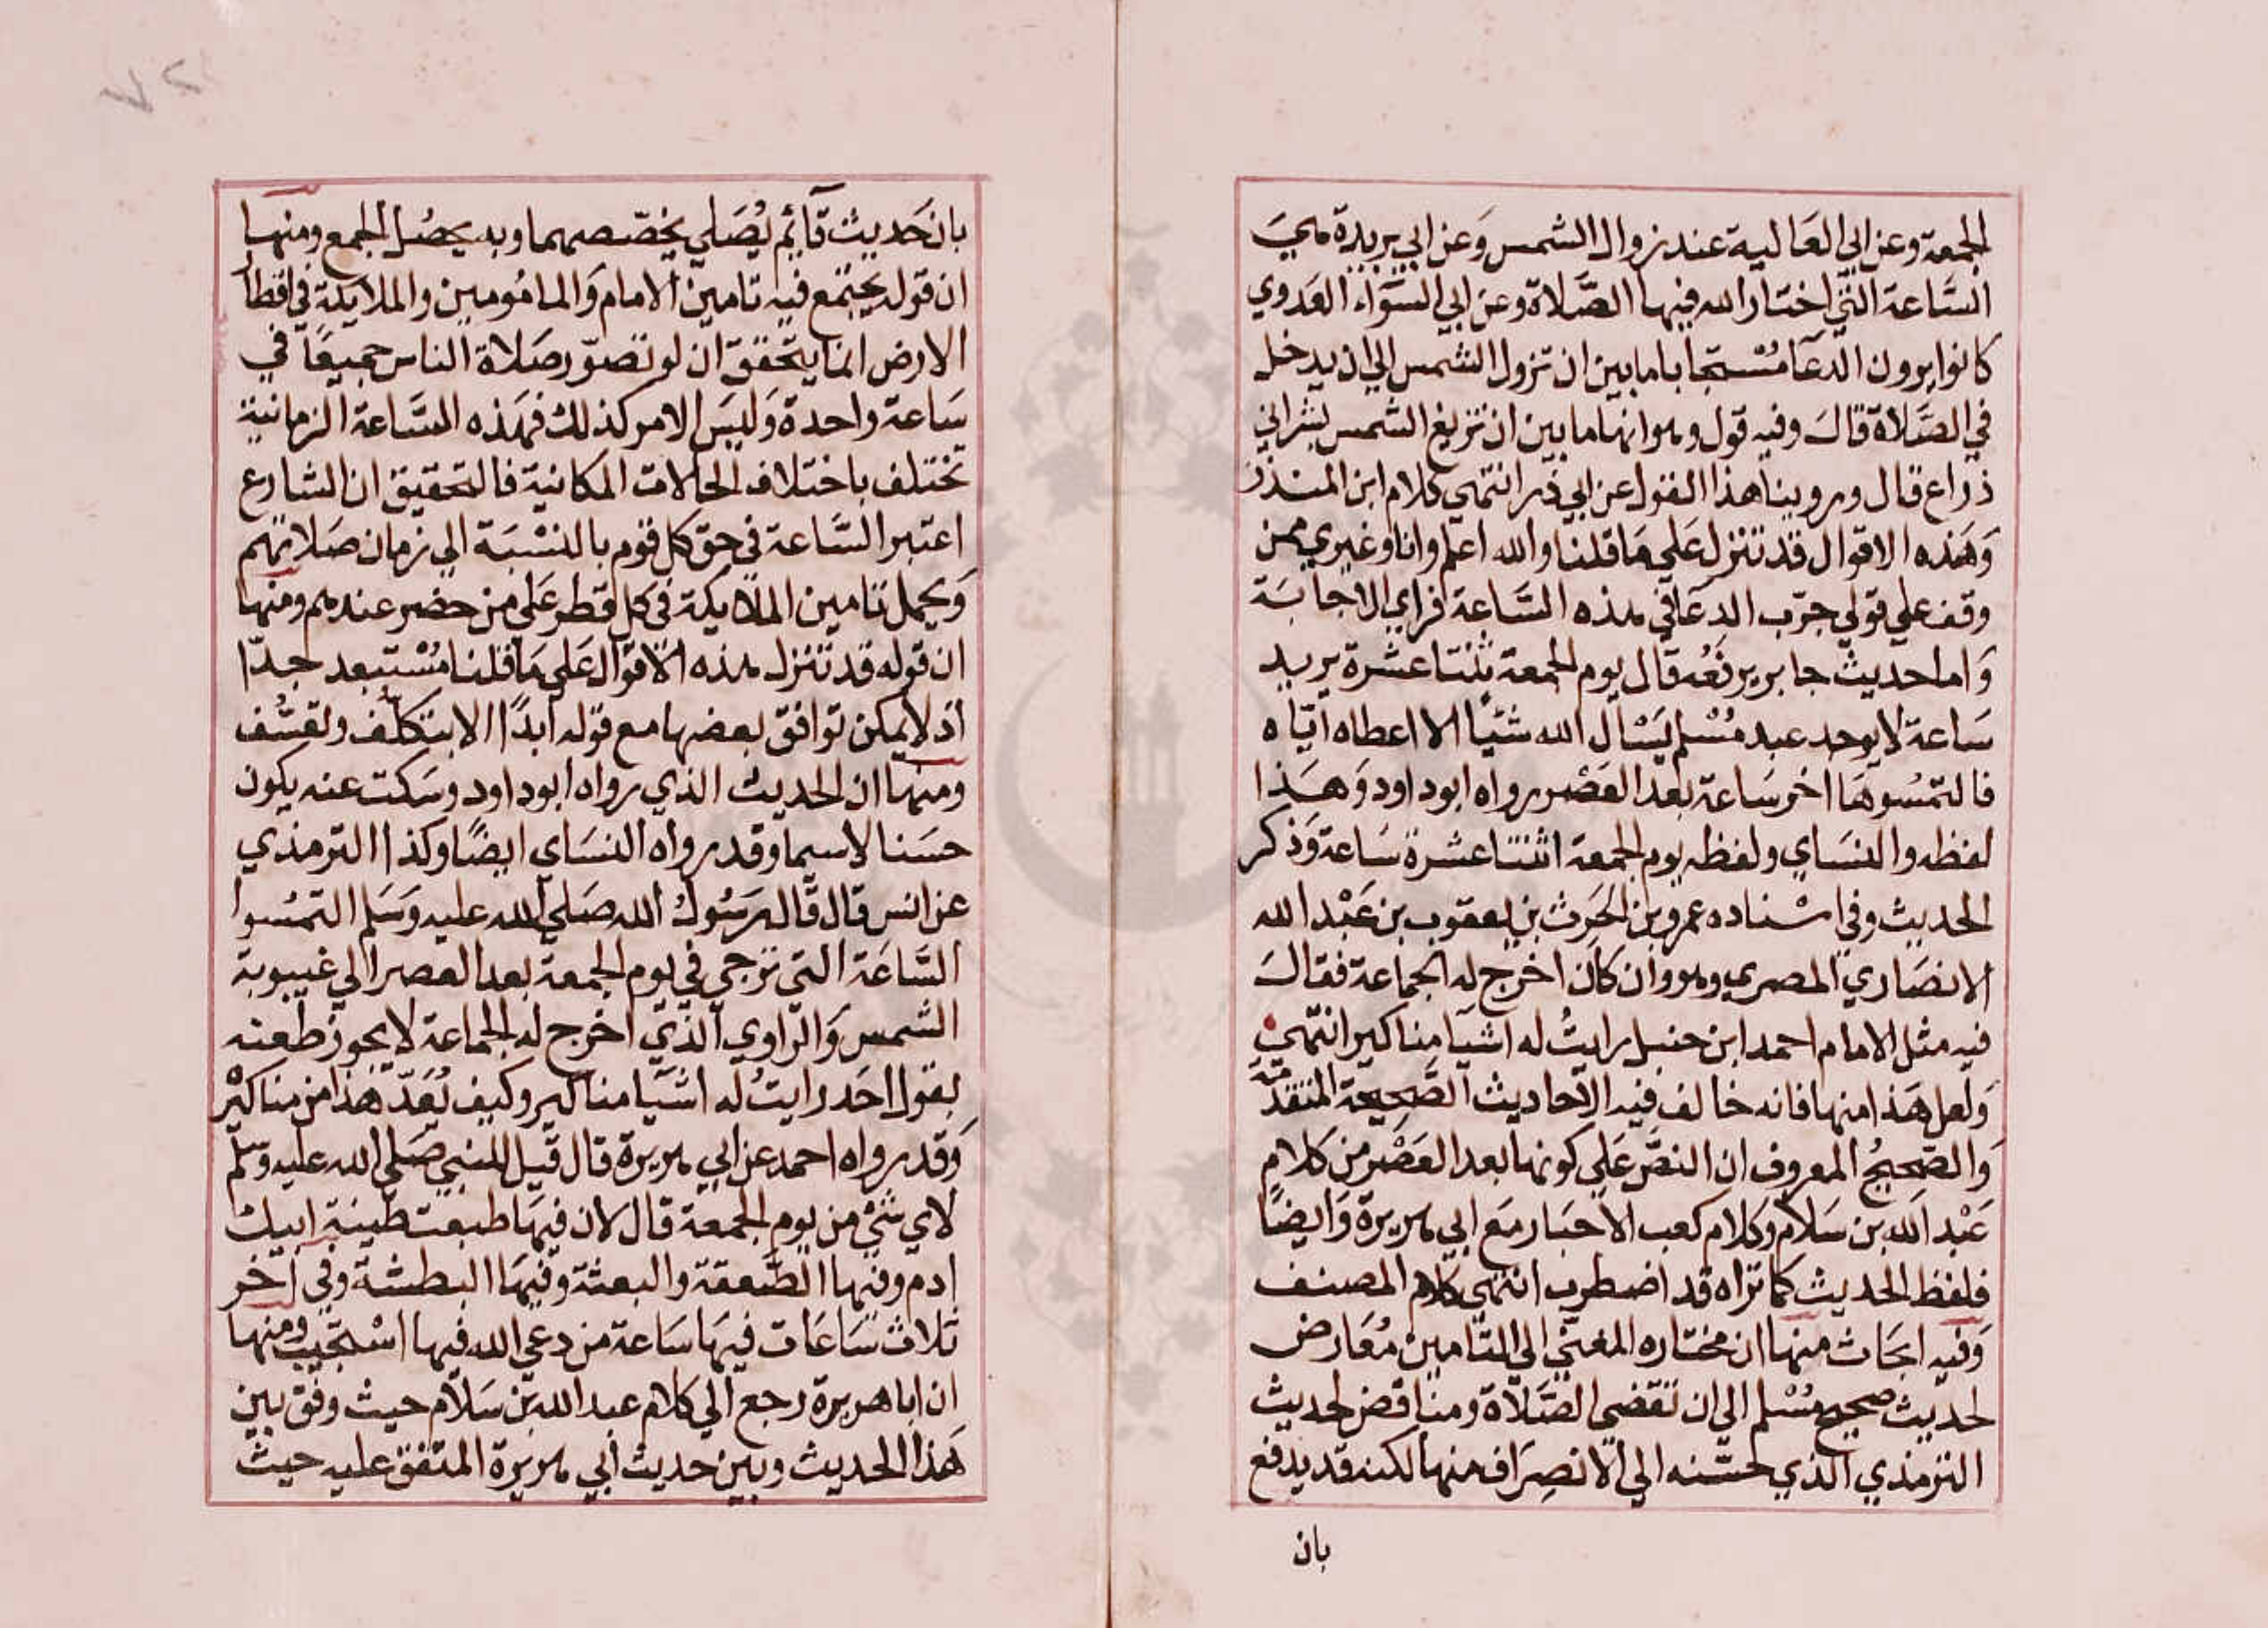 الجمعة وعن ابي العَالية عند زوال الشمس وَعن ابي بريدة هيَ
السَّاعة التي اختار الله فيها الصَّلاة وعن ابي السَّوَّاء العَدوي
كانوا يرون الدعَا مُسْتجابا ما بين ان تزول الشمس الي ان يدخل
في الصَّلاة قالَ وفيه قول وهو انها ما بين ان تزيغ الشمس بشراني
ذراع قال وروينا هذا القول عن ابي ذر انتهي كلام ابن المنذر
وَهَذه الاقوال قد تتنزل عَلي مَا قلنا والله اعلم وانا وغيري ممن
وقف علي قولي جرّب الدعَا في هذه السَّاعة فراي الاجابَة
وَاما احديث جابر يرفعُه قال يوم الجمعة ثنتا عشرة يريد
سَاعة لا يوجد عبد مُسْلم يَسْال الله شيًا الا اعطاه ايّاه
فالتمسُوهَا اخر سَاعة بعد العَصْر رواه ابو داود وَهَذا
لفظه والنسَاي ولفظه يوم الجمعة اثنتا عشرة سَاعة وَذكر
الحديث وفي اسْناده عمرو بن الحَرِث بن يعقوب بن عَبْد الله
الانصَاري المصري وهو وان كان اخرج له الجماعة فقالَ
فيه مثل الامام احمد ابن حنبل رايتُ له اشيَا مناكير انتهي
وَلعل هَذا منها فانه خالف فيه الاحاديث الصَّحيحة المتقدّمة
وَالصّحيحُ المعروف ان النصَّ عَلي كونها بعد العَصْر من كلام
عَبْد الله بن سَلام وكلام كعب الاحبَار مَع ابي هريرة وَايضًا
فلفظ الحديث كما تراه قد اضطرب انتهي كلام المصنف
وَفيه ابحَاث منها ان مختاره المغيّي الي التامين مُعَارض
لحديث صحيح مُسْلم الي ان تقضي الصَّلاة ومناقض لحديث
الترمذي الذي حسّنه الي الانصِرَاف منها لكنه قد يدفع
بان
بان حَديث قآئم يُصَلي يخصّصهما وبه يحصُل الجمع ومنها
ان قوله يجتمع فيه تامين الامام وَالمامُومين والملايكة في اقطار
الارض انما يتحقق ان لو تصوّر صَلاة الناس جميعًا في
سَاعة واحدة وَليسَ الامر كذلك فهَذه السَّاعة الزمانية
تختلف باختلاف الحالات المكانية فالتحقيق ان الشارع
اعتبر السَّاعة في حق كل قوم بالنسْبَة الي زمان صَلاتهم
وَيحمل تامين الملايكة في كل قطر عَلي من حضر عندهم ومنها
ان قوله قد تتنزل هذه الاقوال عَلي مَا قلنا مُسْتبعد جدّا
اذ لا يمكن توافق بعضها مع قوله ابدًا الا بتكلّف وتعسّف
ومنهَا ان الحديث الذي رواه ابو داود وسَكت عنه يكون
حسَنا لا سيما وقد رواه النسَاي ايضًا وكذا الترمذي
عن انس قال قال رَسُول الله صَلي الله عليه وَسَلم التمسُوا
السَّاعَة التي ترجي في يوم الجمعة بعد العصر الي غيبوبة
الشمس وَالرّاوي الذي اخرج له الجماعة لا يجوز طعنه
بقول احَد رايتُ له اشيَا مناكير وكيف يُعَدّ هَذا من مناكير
وَقد رواه احمد عن ابي هريرة قال قيل للنبي صَلي الله عليه وسَلم
لاي شيْ من يوم الجمعة قال لان فيهَا طبعت طينة ابيك
ادم وفيها الصَّعقة والبعثة وفيهَا البطشة وفي اخر
ثلاث سَاعَات فيهَا سَاعة من دعي الله فيها اسْتجيب ومنها
ان ابا هريرة رجع الي كلام عبد الله بن سَلام حيث وفق بين
هَذا الحديث وبين حديث ابي هريرة المتفق عليه حيث